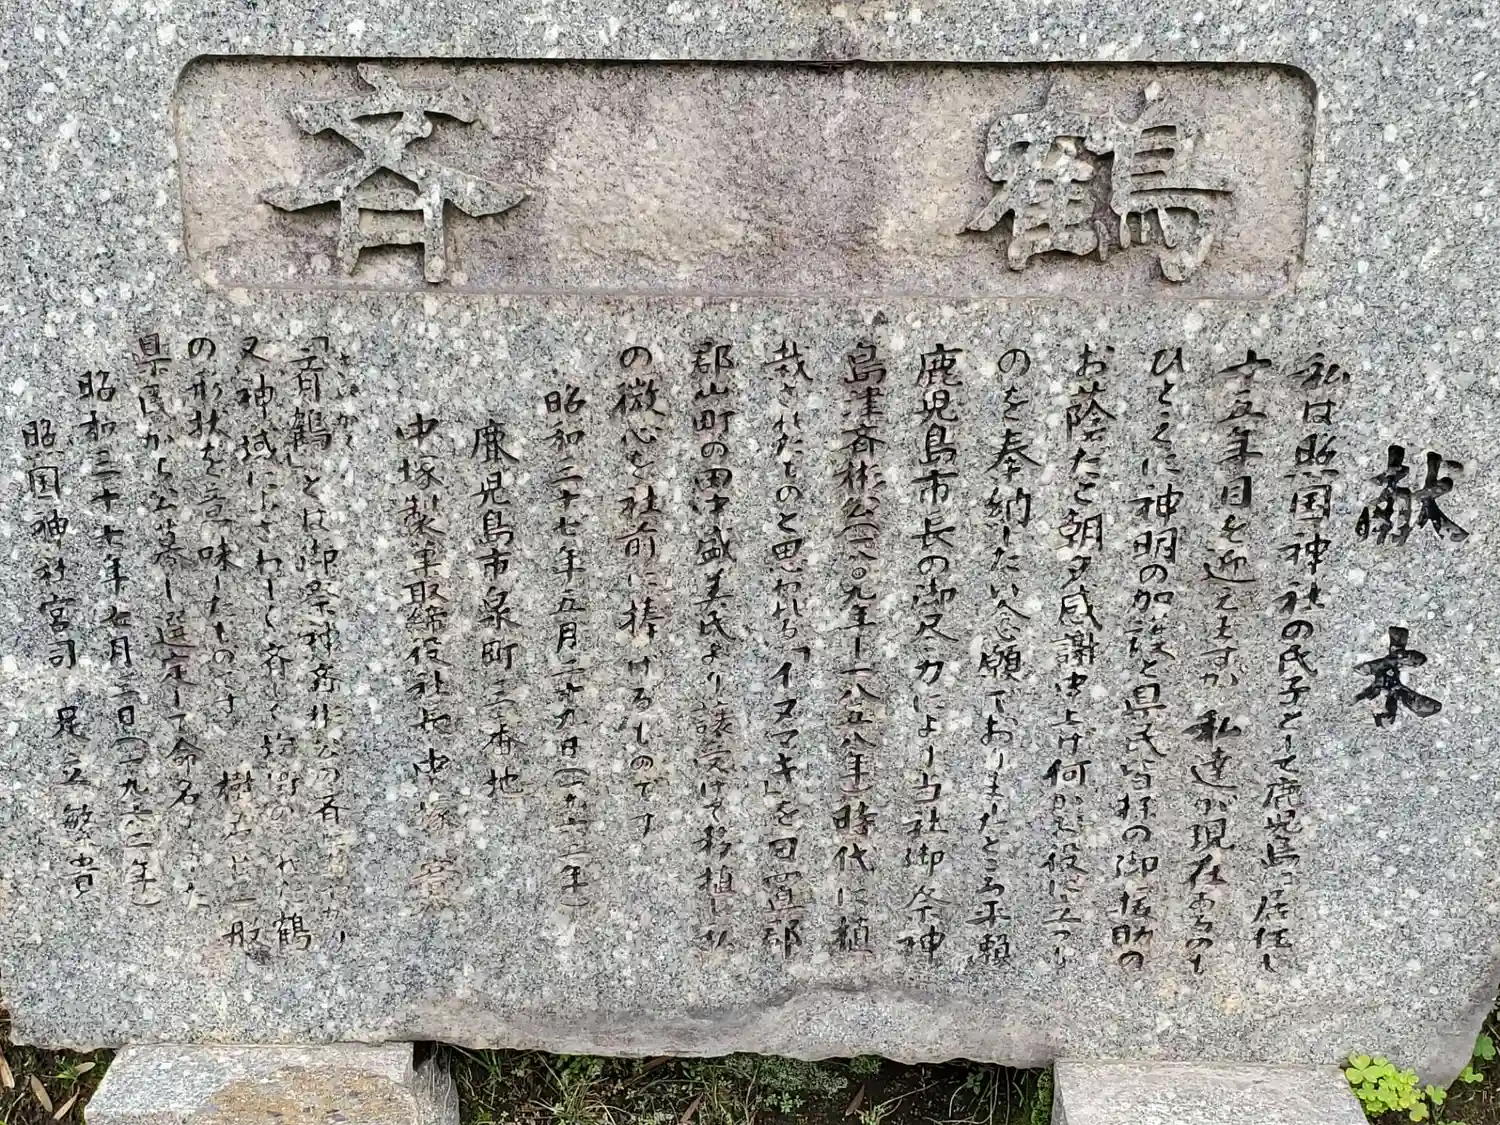 斉鶴
献木
私は照国神社の氏子として鹿児島に居住し
十五年目を迎えますが私達が現在あるのも
ひとえに神明の加護と県民皆様の御援助の
お蔭だと朝夕感謝申上げ何かお役に立つも
のを奉納したい念願でおりましたところ平瀬
鹿児島市長の御尽力により当社御祭神
島津斉彬公(一八〇九年ー一八五八年)時代に植
栽されたものと思われる「イヌマキ」を日置郡
郡山町の田中盛美氏より譲受けて移植し私
の微心を社前に捧げるものです
昭和三十七年五月二十九日(一九六二年)
鹿児島市泉町三番地
中塚製菓取締役社長 中塚 實
さいかく
「斉鶴」とは御祭神斉彬公の斉にあやかり
又神域にふさわしく斉しく均衡のとれた鶴
の形状を意味したものです 樹名は一般
県民から公募し選定して命名しました
昭和三十七年七月三日(一九六二年)
照国神社宮司 足立繁貴